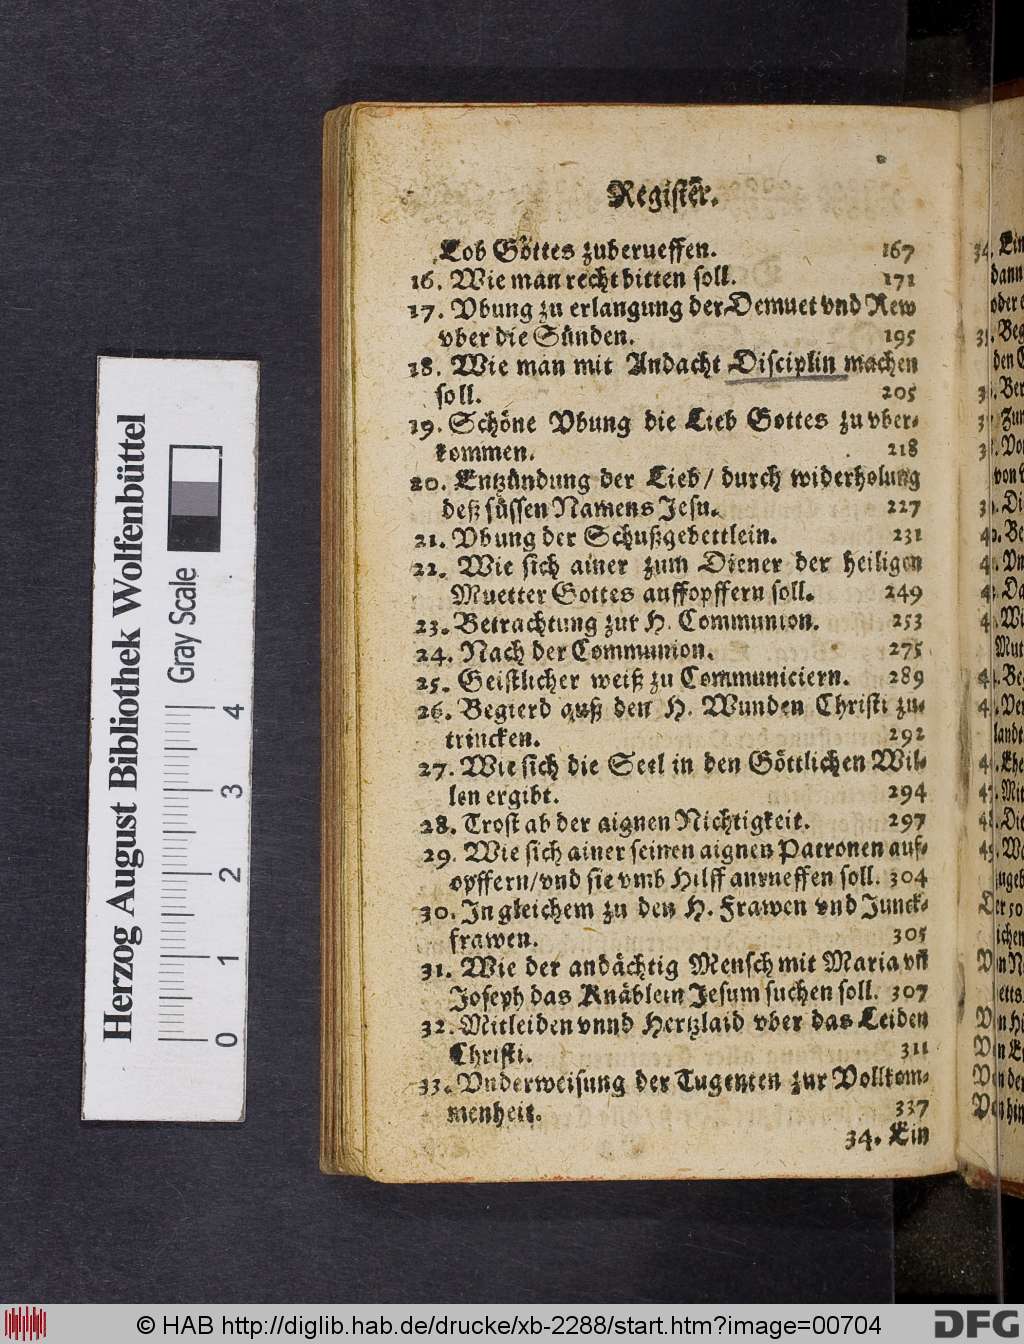 Register.
Lob Gottes zuberueffen. 167
16. Wie man recht bitten soll. 171
17. Vbung zu erlangung der Demuet vnd Rew
vber die Sünden. 195
18. Wie man mit Andacht Disciplin machen
soll. 205
19. Schöne Vbung die Lieb Gottes zu vber-
kommen. 218
20. Entzündung der Lieb / durch widerholung
deß süssen Namens Jesu. 227
21. Vbung der Schußgebettlein. 231
22. Wie sich ainer zum Diener der heiligen
Muetter Gottes auffopffern soll. 249
23. Betrachtung zur H. Communion. 253
24. Nach der Communion. 275
25. Geistlicher weiß zu Communiciern. 289
26. Begierd auß den H. Wunden Christi zu-
trincken. 292
27. Wie sich die Seel in den Göttlichen Wil-
len ergibt. 294
28. Trost ab der aignen Nichtigkeit. 297
29. Wie sich ainer seinen aignen Patronen auf-
opffern/vnd sie vmb Hilff anrueffen soll. 304
30. In gleichem zu den H. Frawen vnd Junck-
frawen. 305
31. Wie der andächtig Mensch mit Maria vñ
Joseph das Knäblein Jesum suchen soll. 307
32. Mitleiden vnnd Hertzlaid vber das Leiden
Christi. 311
33. Vnderweisung der Tugenten zur Vollkom-
menheit. 337
34. Ein
Herzog August Bibliothek Wolfenbüttel
Gray Scale
0 1 2 3 4
© HAB http://diglib.hab.de/drucke/xb-2288/start.htm?image=00704
DFG